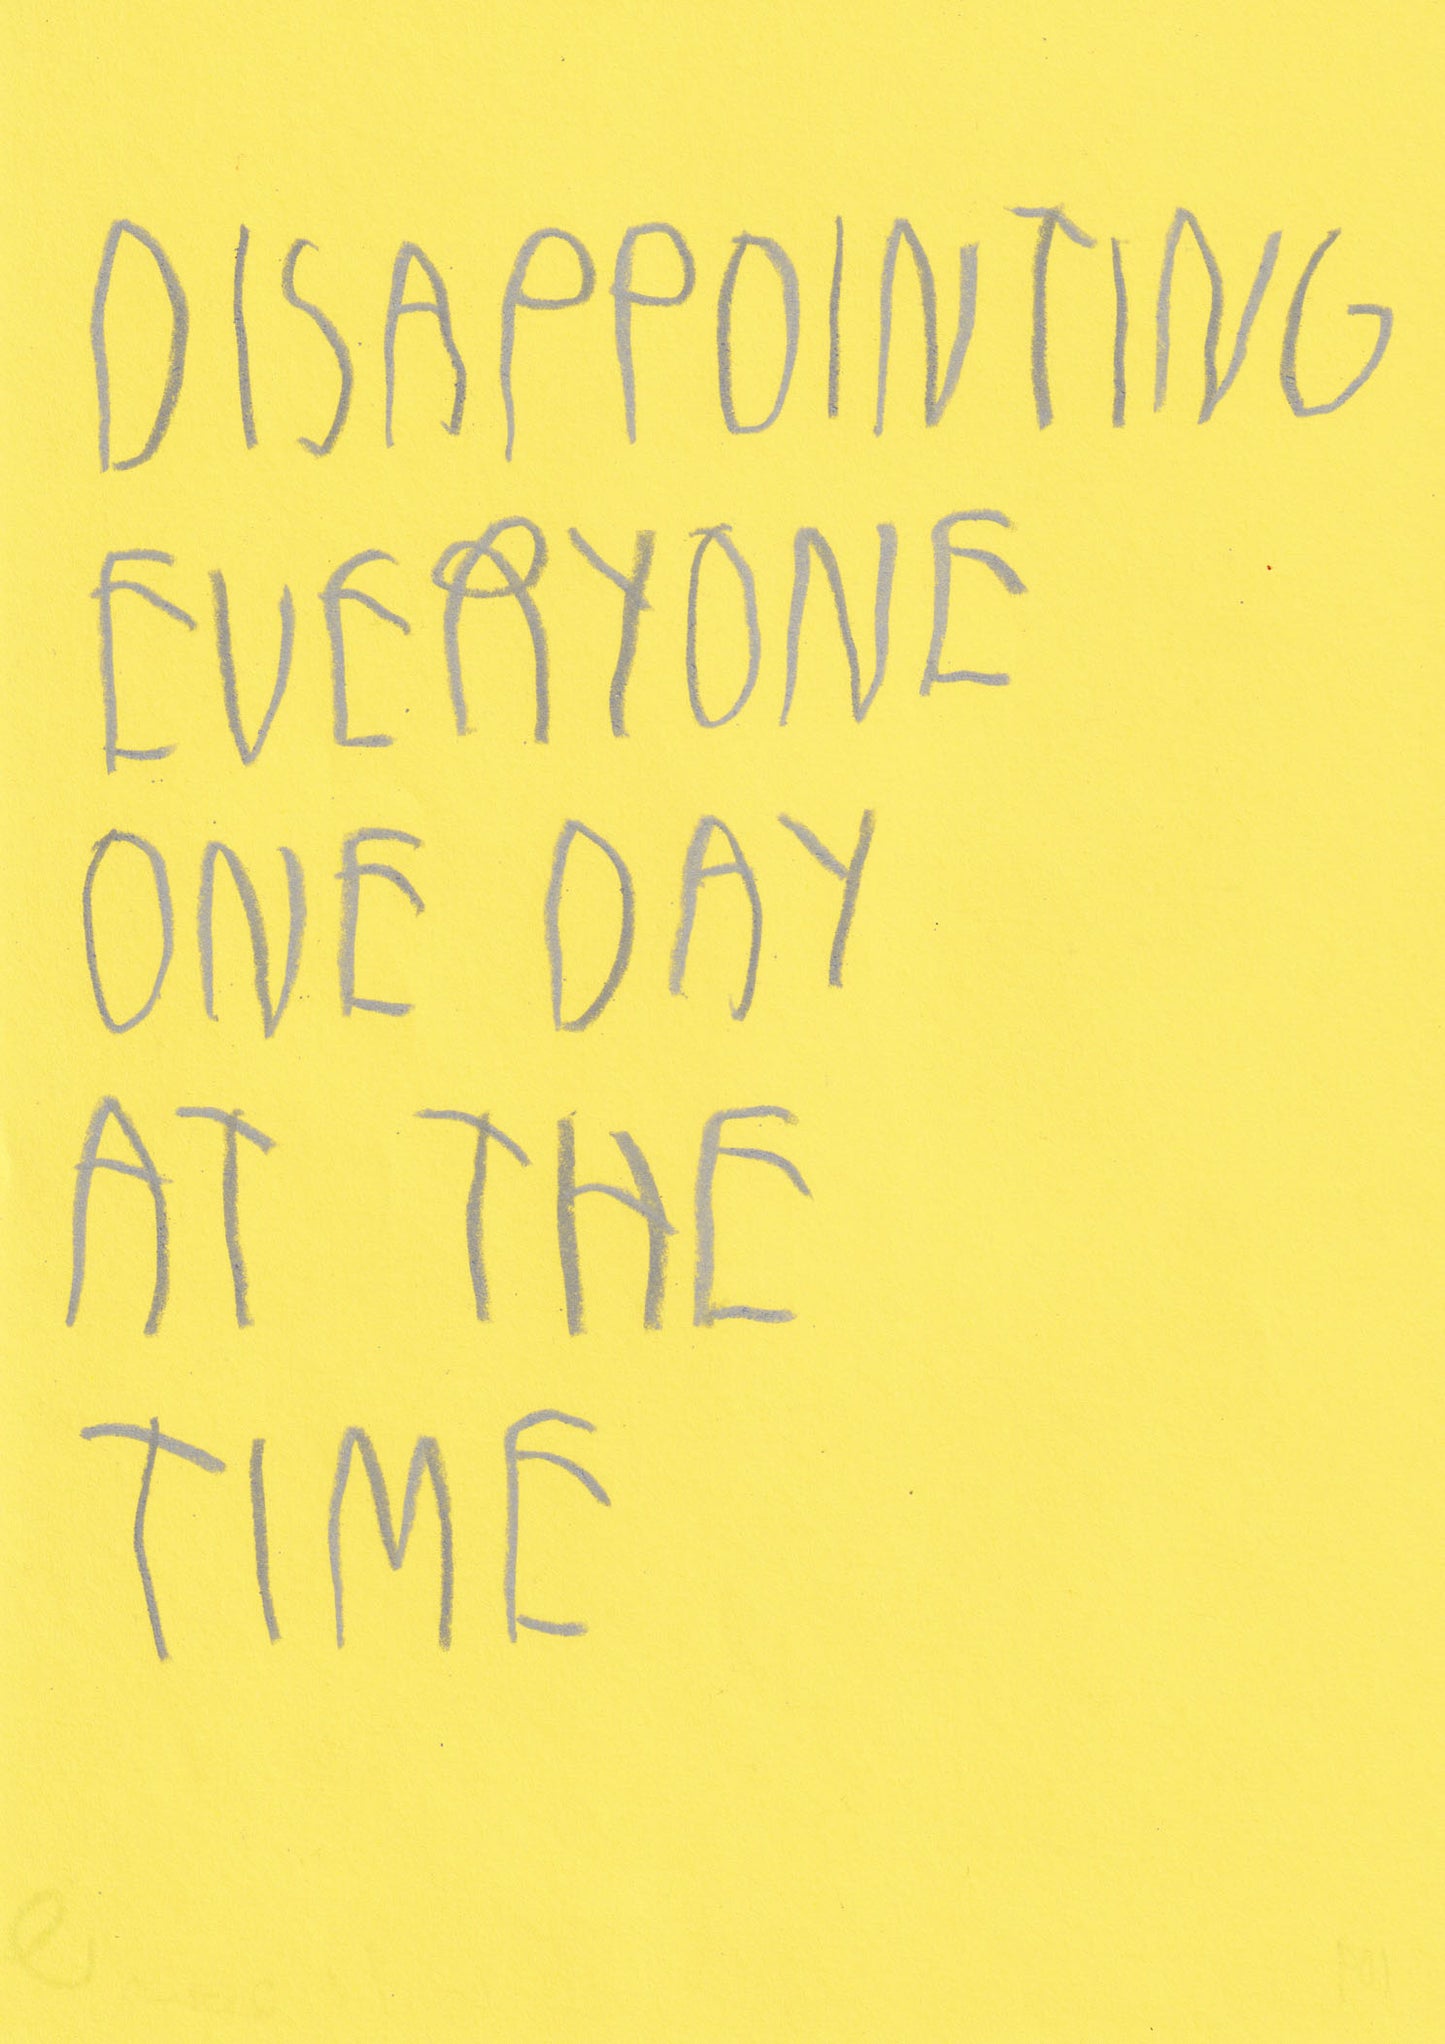 DISAPPOINTING
EVERYONE
ONE DAY
AT THE
TIME